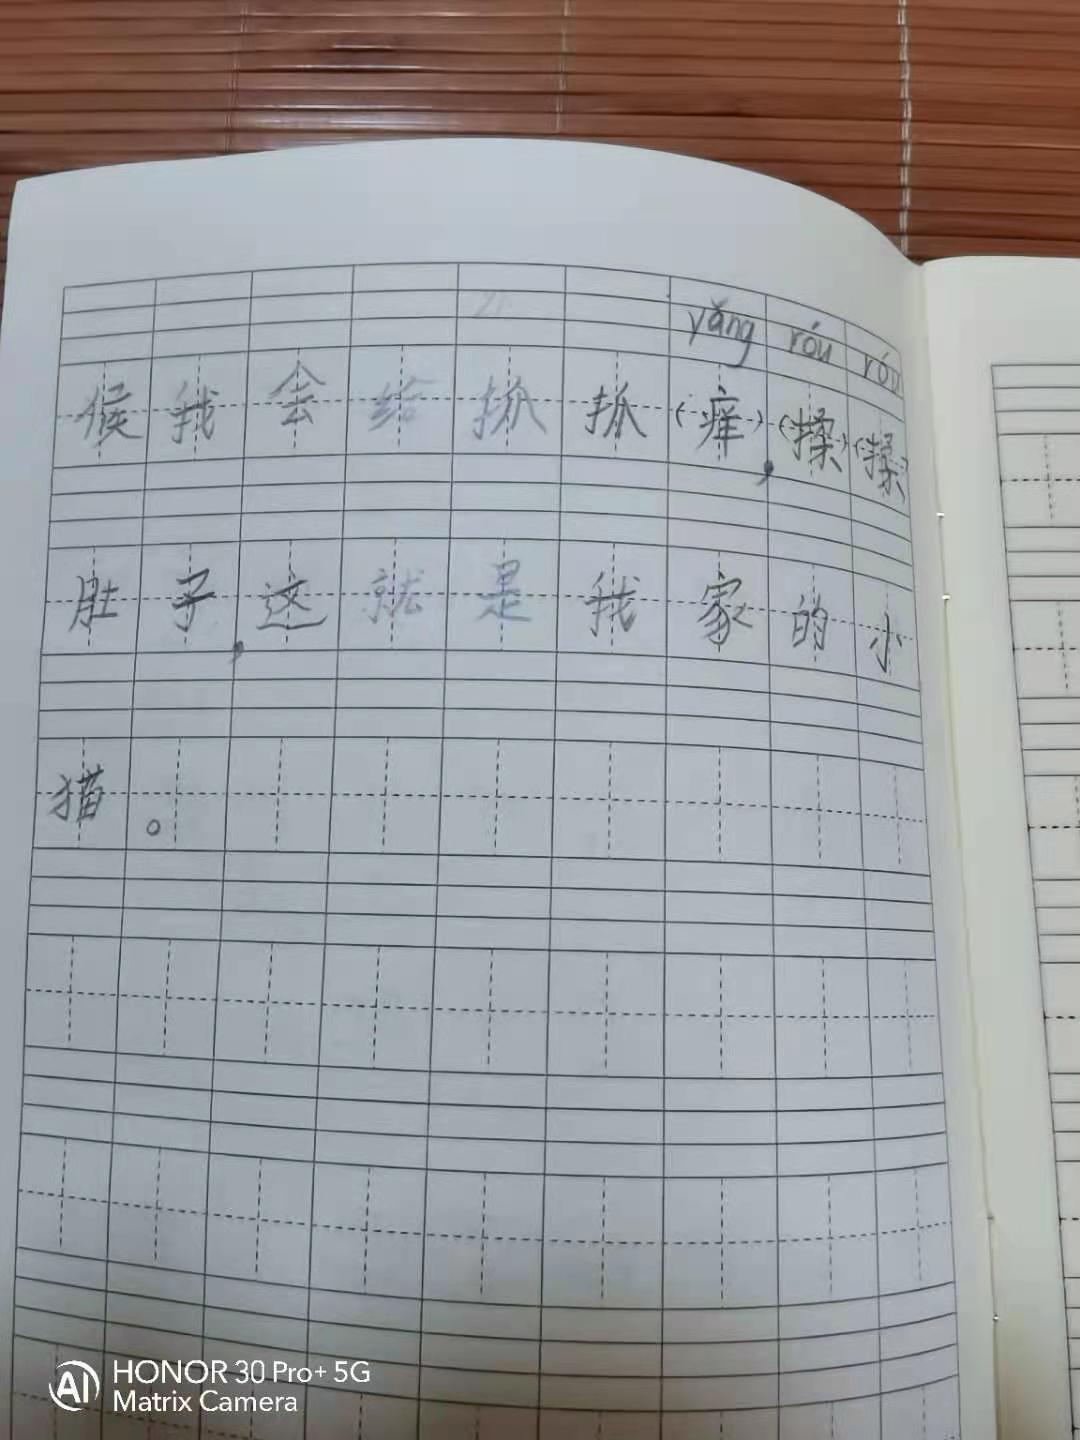 yǎng róu róu
候我会给抓抓(痒),(揉)(揉)
肚子,这就是我家的小
猫。
HONOR 30 Pro+ 5G
Matrix Camera